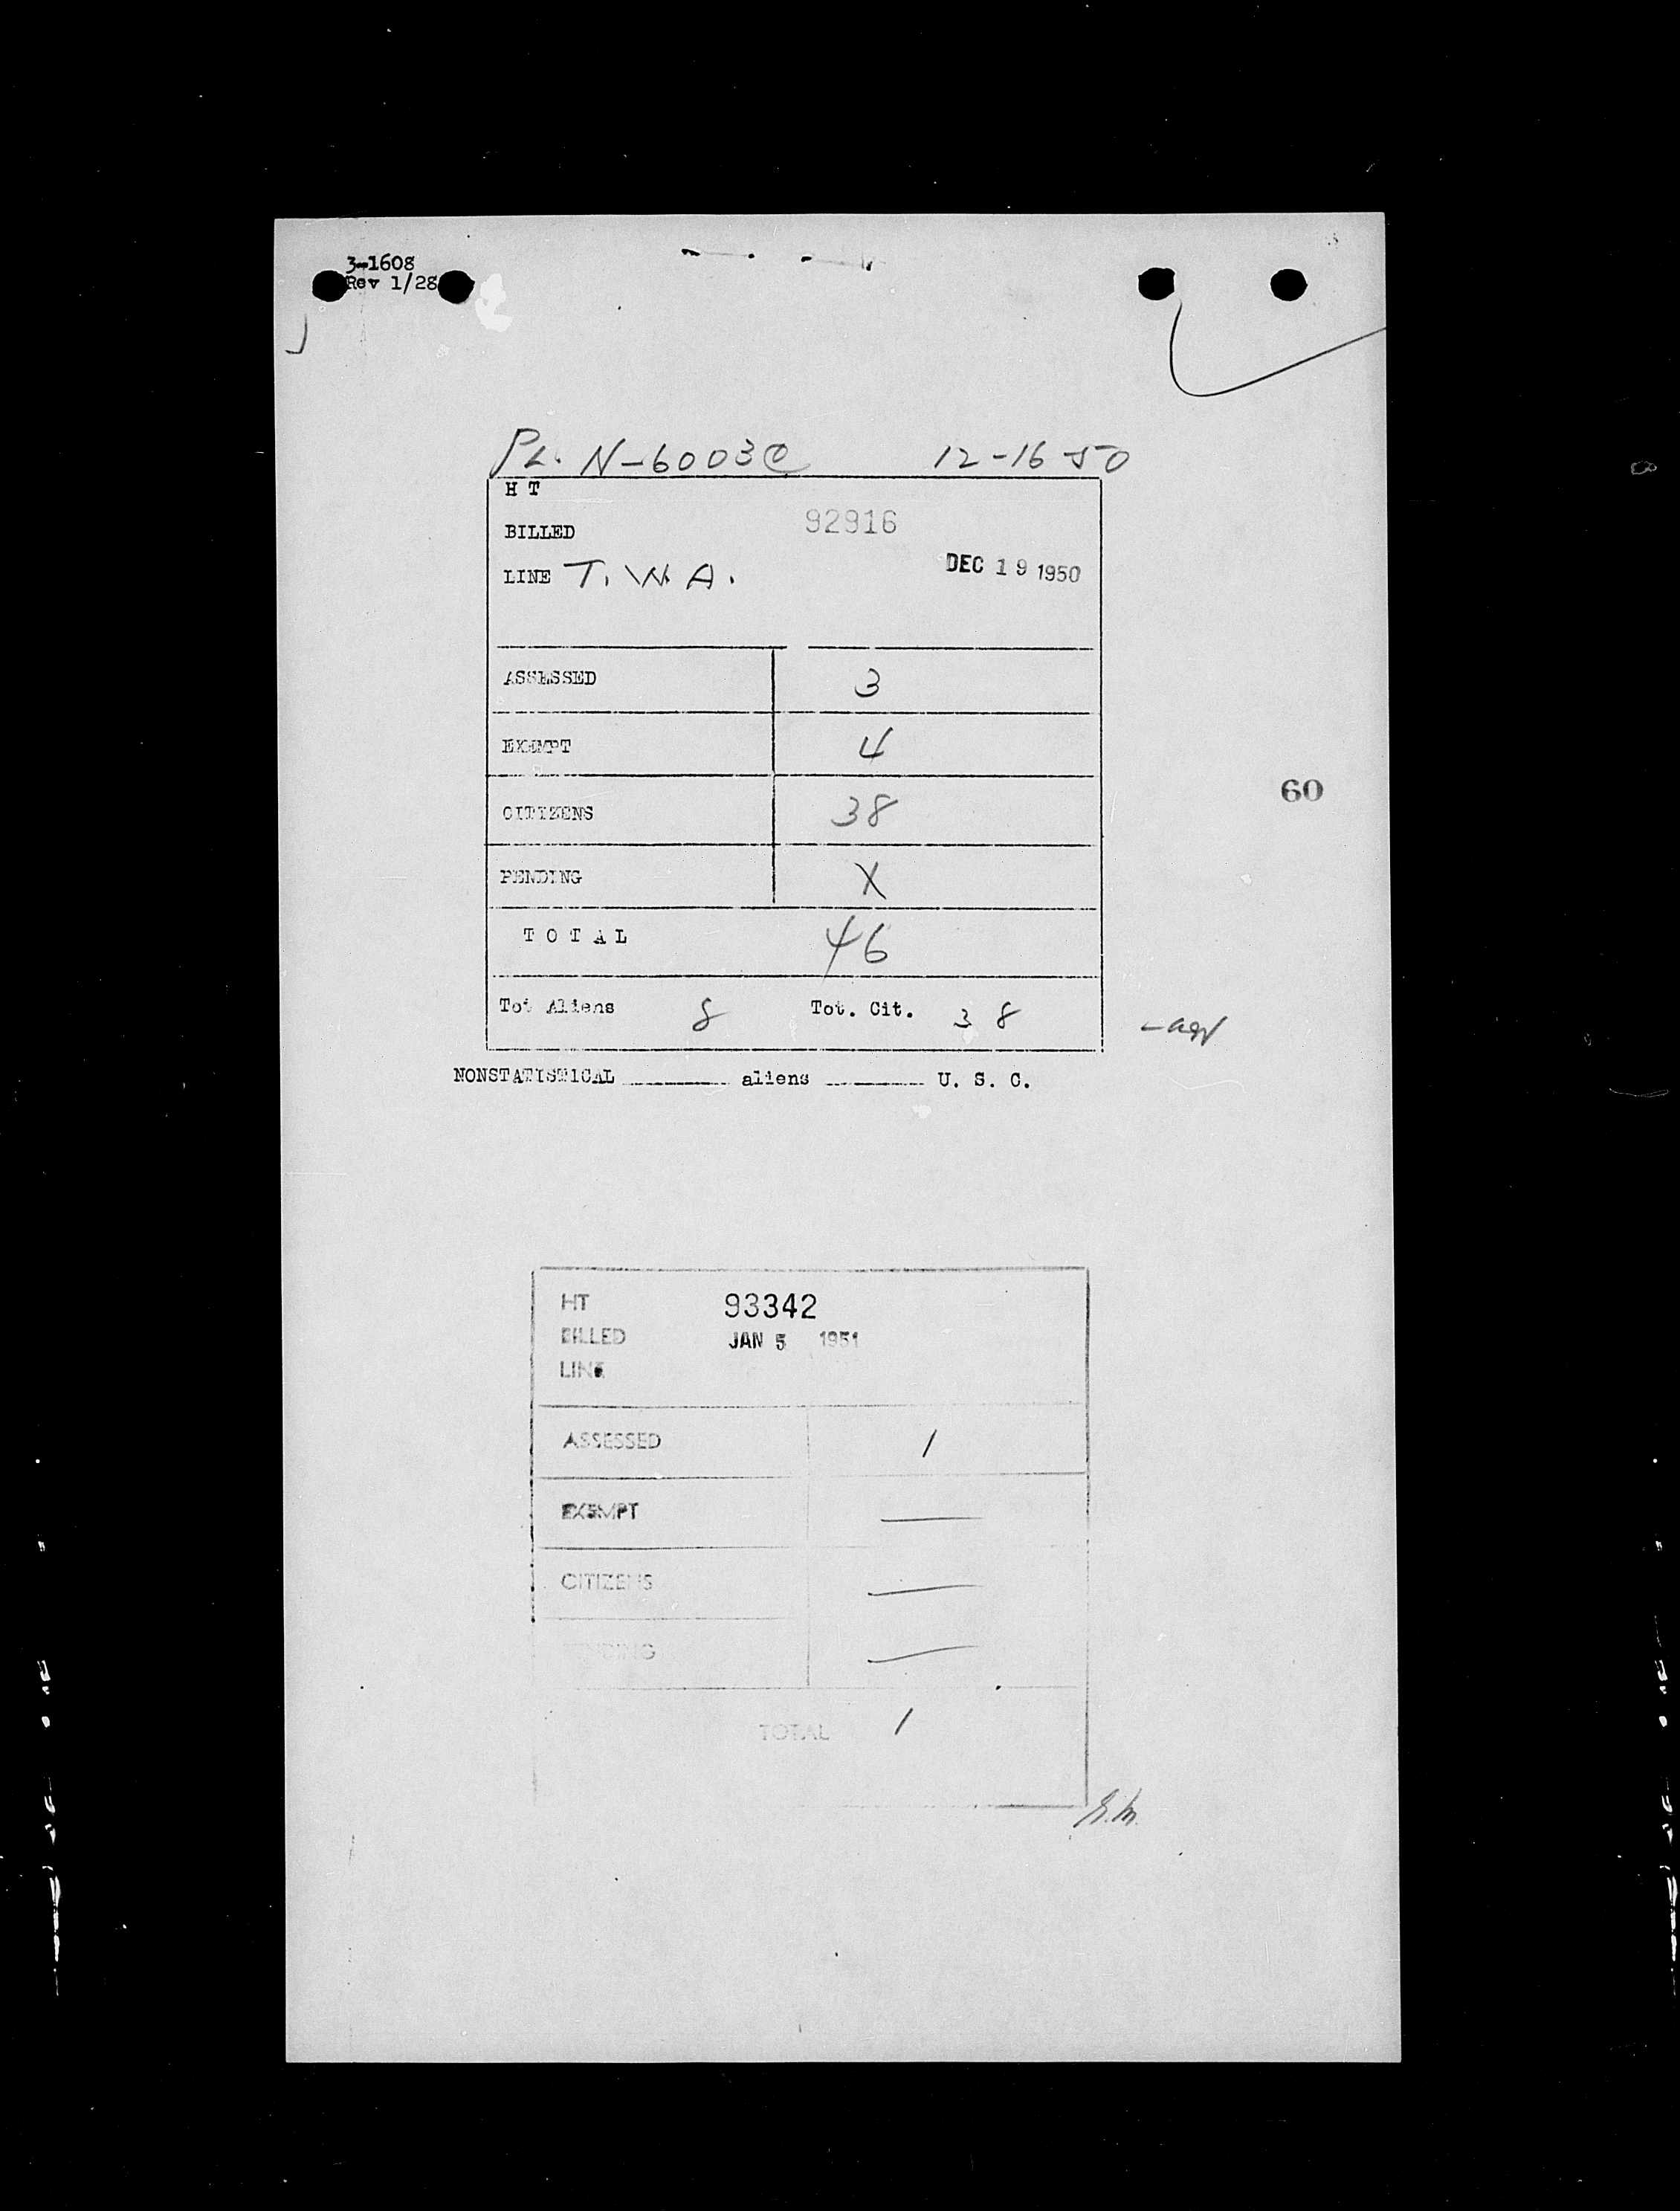 3-1608
Rev 1/28
PL. N-6003C 12-16-50
H T
BILLED 92916
LINE T.W.A. DEC 19 1950
ASSESSED 3
EXEMPT 4
CITIZENS 38
60
PENDING X
TOTAL 46
Tot Aliens 8 Tot. Cit. 38
NONSTATISTICAL ______ aliens ______ U. S. C.
HT 93342
BILLED JAN 5 1951
LINE
ASSESSED 1
EXEMPT —
CITIZENS —
PENDING —
TOTAL 1